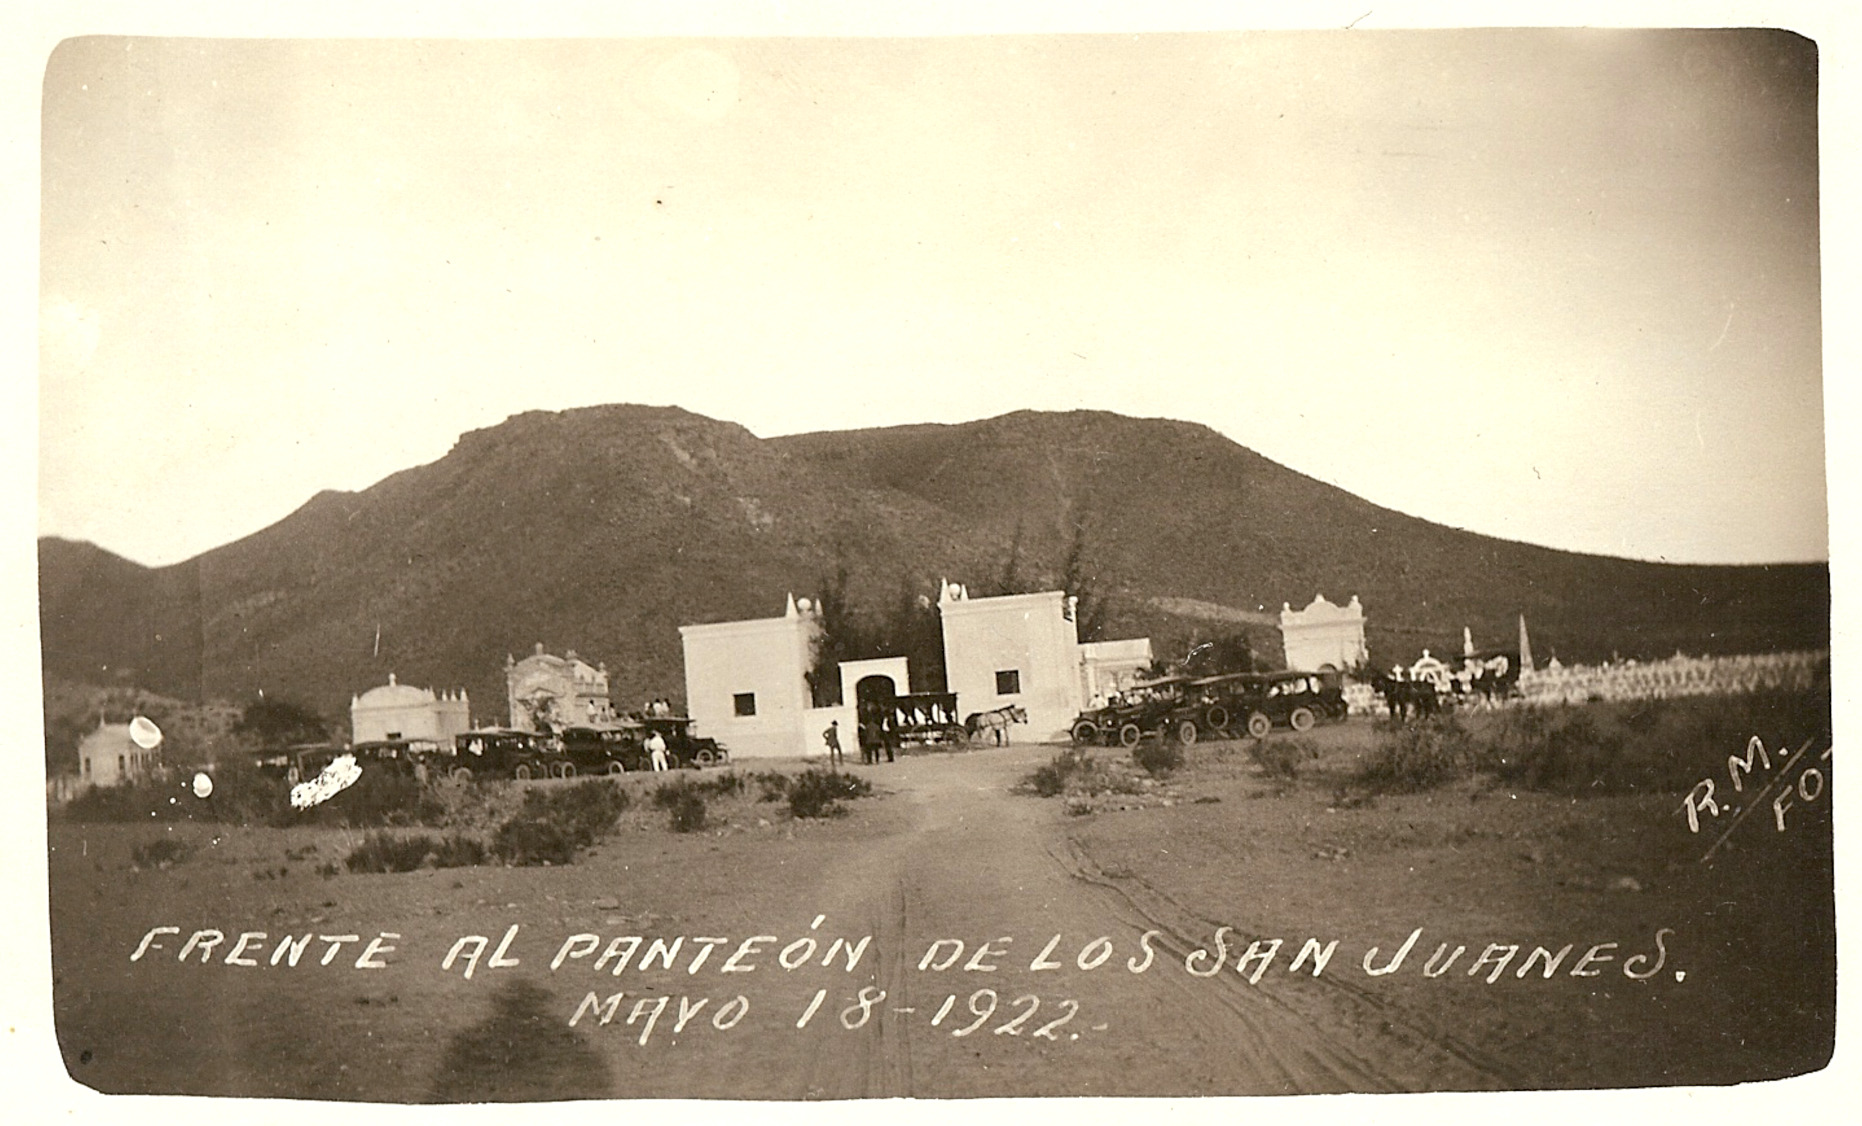 R.M.
FO
FRENTE AL PANTEÓN DE LOS SAN JUANES.
MAYO 18-1922.-